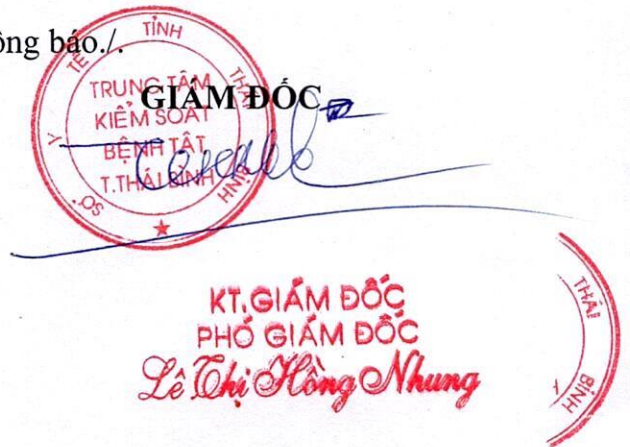 ông báo./.
GIÁM ĐỐC
SỞ Y TẾ TỈNH THÁI BÌNH
TRUNG TÂM
KIỂM SOÁT
BỆNH TẬT
T.THÁI BÌNH
KT.GIÁM ĐỐC
PHÓ GIÁM ĐỐC
Lê Thị Hồng Nhung
THÁI
BÌNH